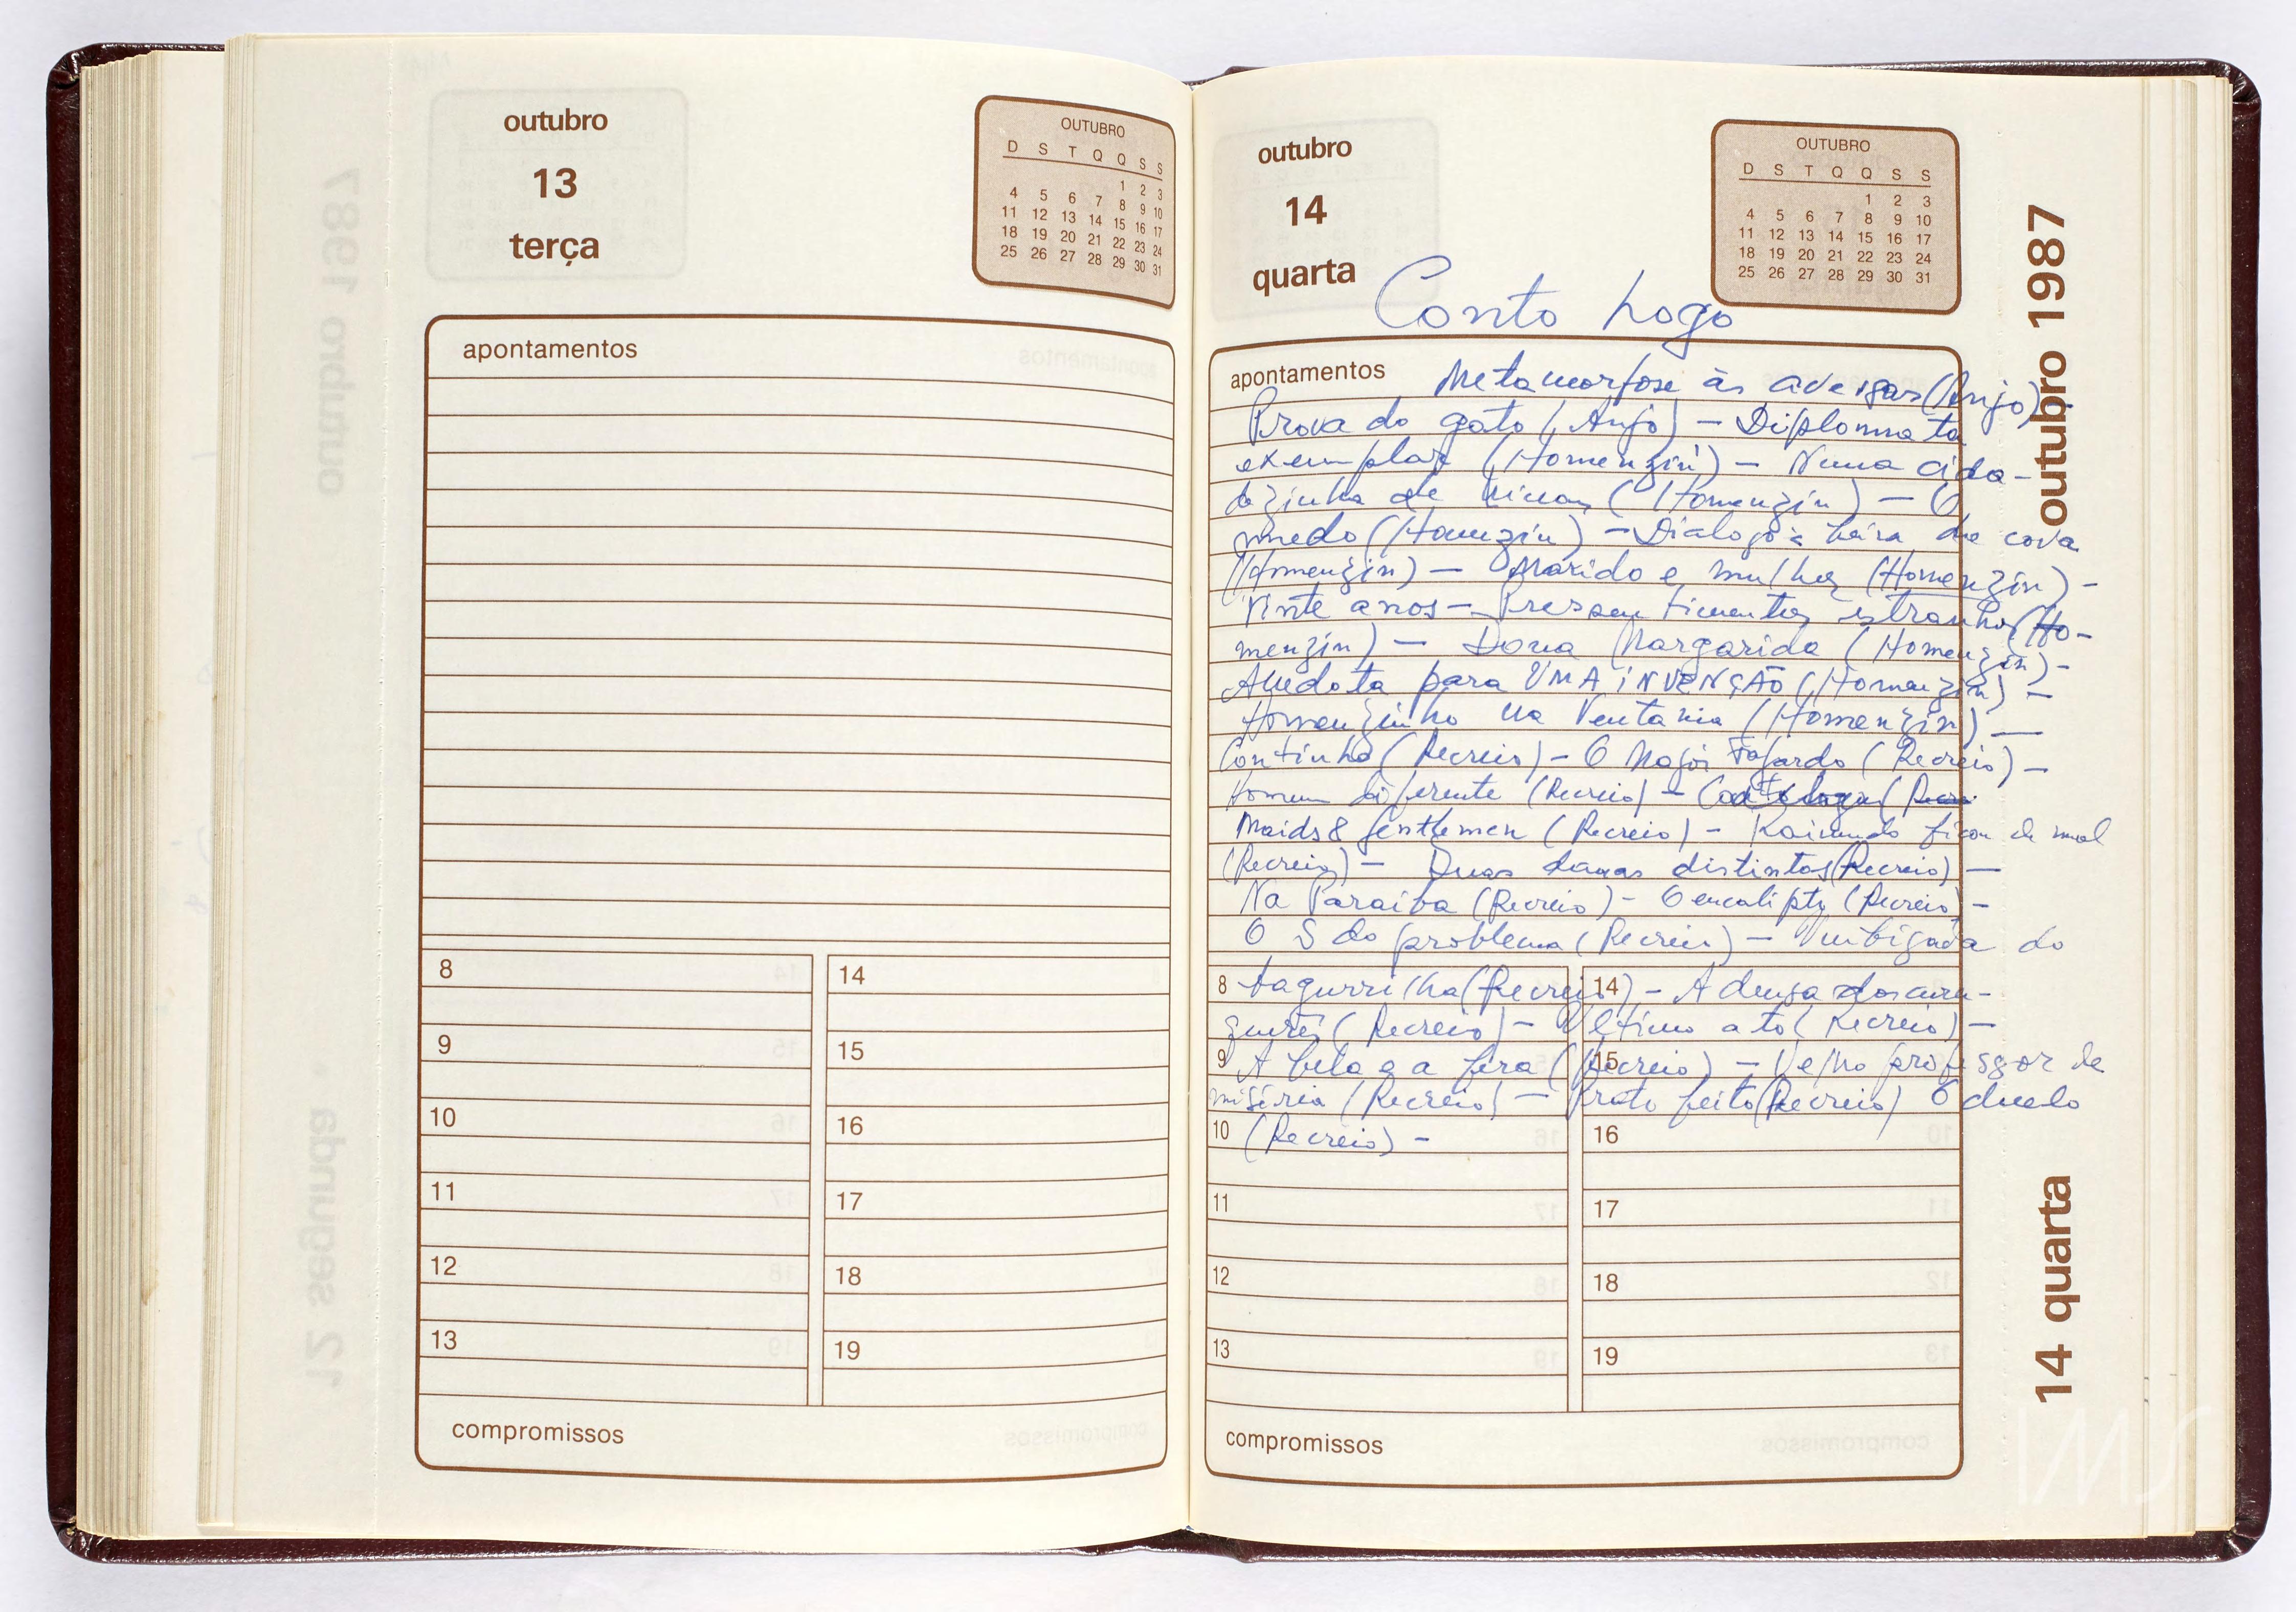 outubro
13
terça
OUTUBRO
D S T Q Q S S
1 2 3
4 5 6 7 8 9 10
11 12 13 14 15 16 17
18 19 20 21 22 23 24
25 26 27 28 29 30 31
apontamentos
8 14
9 15
10 16
11 17
12 18
13 19
compromissos
outubro
14
quarta
OUTUBRO
D S T Q Q S S
1 2 3
4 5 6 7 8 9 10
11 12 13 14 15 16 17
18 19 20 21 22 23 24
25 26 27 28 29 30 31
outubro 1987
14 quarta
Conto logo
apontamentos
Metamorfose às avessas (Anjo) -
Prova do gato (Anjo) - Diplomata
exemplar (Homenzin) - Numa cida-
dezinha de Minas (Homenzin) - O
medo (Homezin) - Dialogo à beira da cova
(Homenzin) - Marido e mulher (Homenzin) -
Vinte anos - Pressentimentos estranhos (Ho-
menzin) - Dona Margarida (Homenzin) -
Anedota para UMA iNVENÇÃO (Homenzin) -
Homenzinho na Ventania (Homenzin) -
Continho (Recreio) - O Major Fajardo (Recreio) -
Homem diferente (Recreio) -
Maids & Gentlemen (Recreio) - Raimundo ficou de mal
(Recreio) - Duas damas distintas (Recreio) -
Na Paraiba (Recreio) - O eucalipto (Recreio) -
O S do problema (Recreio) - Umbigada do
8 14
tagurrilha (Recreio) - A deusa dos
(Recreio) - Último ato (Recreio) -
9 15
A bela e a fera (Recreio) - Velho professor de
miséria (Recreio) - Prato feito (Recreio) O duelo
10 16
(Recreio) -
11 17
12 18
13 19
compromissos
IMS